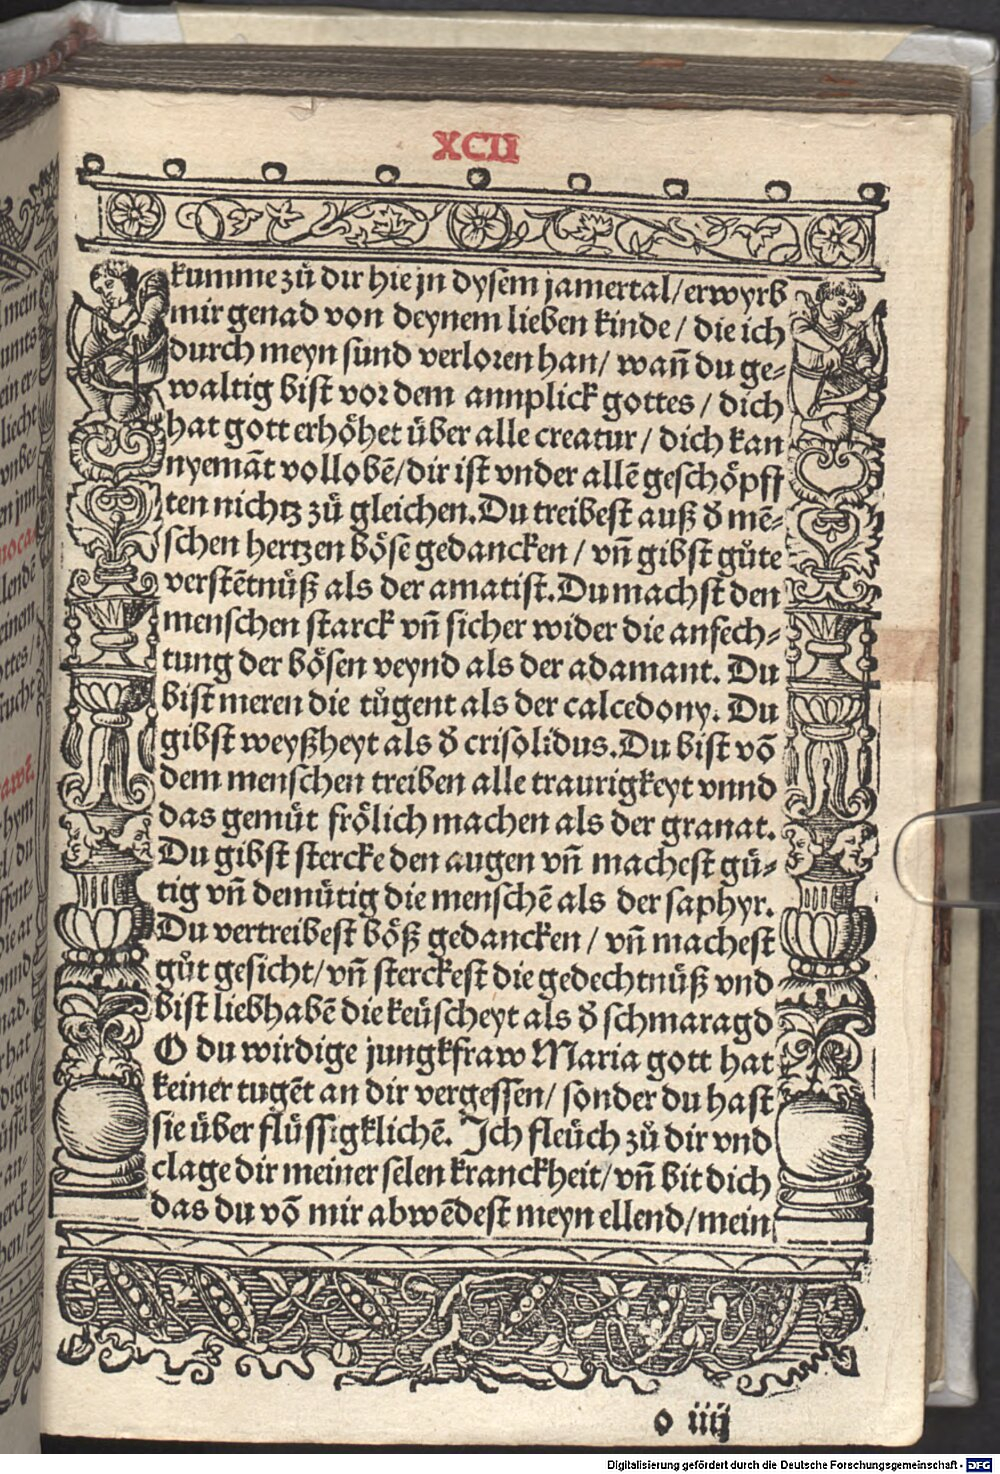 XCII
kumme zů dir hie jn dysem jamertal/ erwyrb
mir genad von deynem lieben kinde / die ich
durch meyn sund verloren han/ wañ du ge⸗
waltig bist vor dem annplick gottes / dich
hat gott erhöhet über alle creatur / dich kan
nyemãt vollobẽ/ dir ist vnder allẽ geschöpff
ten nichtz zů gleichen. Du treibest auß ð mẽ⸗
schen hertzen bösẽ gedancken / vñ gibst gůte
verstẽtnüß als der amatist. Du machst den
menschen starck vñ sicher wider die anfech⸗
tung der bösen veynd als der adamant. Du
bist meren die tůgent als der calcedony. Du
gibst weyßheyt als ð crisolidus. Du bist võ
dem menschen treiben alle traurigkeyt vnnd
das gemüt frölich machen als der granat.
Du gibst stercke den augen vñ machest gü⸗
tig vñ demütig die menschẽ als der saphyr.
Du vertreibest böß gedancken / vñ machest
gůt gesicht/ vñ sterckest die gedechtnüß vnd
bist liebhabẽ die keüscheyt als ð schmaragd
O du wirdige jungkfraw Maria gott hat
keiner tugẽt an dir vergessen/ sonder du hast
sie über flüssigklichẽ. Ich fleüch zů dir vnd
clage dir meiner selen kranckheit/ vñ bit dich
das du võ mir abwẽdest meyn ellend/ mein
o iiij
mein
umts
ein er⸗
liecht
vnbe⸗
en jun
moca⸗
llendẽ
einem
ottes/
frucht
hym
el/ du
ffent⸗
die ar
vnnd
nad.
r hat
dige
üssel
an⸗
herck
hen/
Digitalisierung gefördert durch die Deutsche Forschungsgemeinschaft - DFG